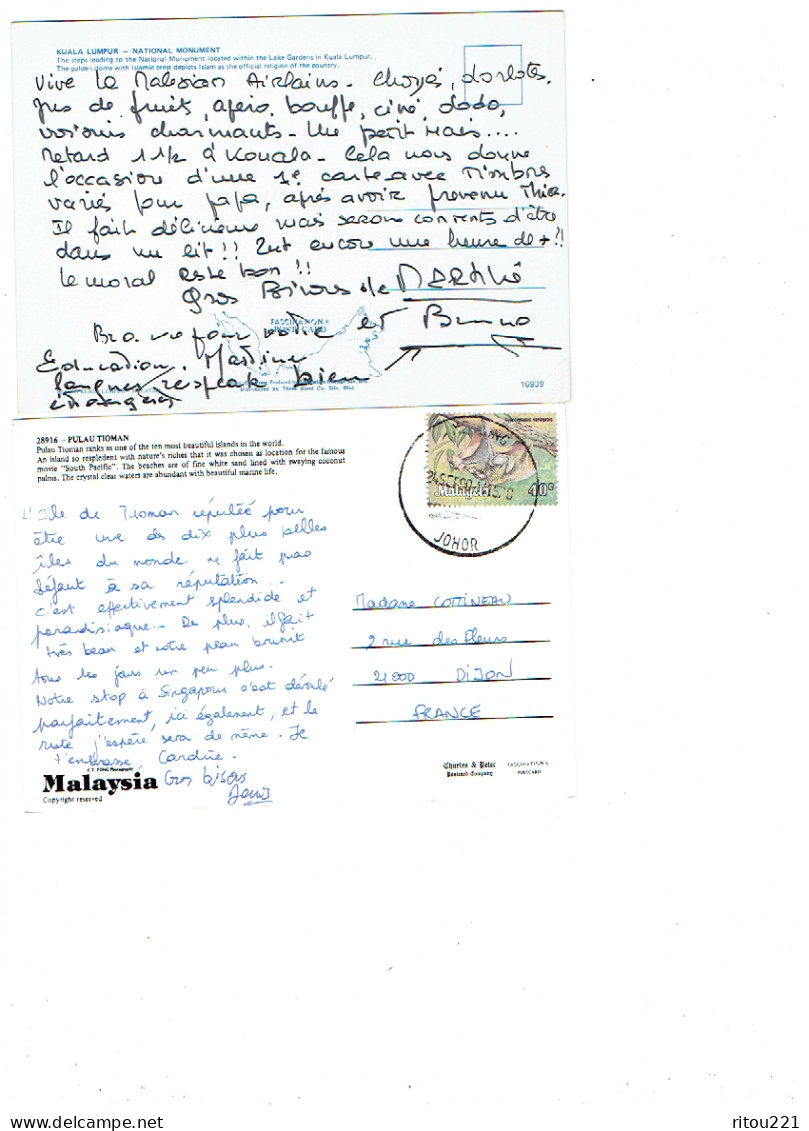 KUALA LUMPUR – NATIONAL MONUMENT
The steps leading to the National Monument located within the Lake Gardens in Kuala Lumpur.
The golden dome with Islamic crest depicts Islam as the official religion of the country.
Vive la Malesian Airlains. Choyés, dorlotés,
jus de fruits, apéro, bouffe, ciné, dodo,
voisins charmants - Un petit mais....
Retard 1 1/2 à Kouala - Cela nous donne
l'occasion d'une 1e carte avec Timbres
variés pour papa, après avoir prevenu
Il fait délicieux mais serons contents d'être
dans un lit !! Zut encore une heure de + !!
le moral reste bon !!
Gros Bisous de
et Bruno
FASCINATION
POST CARD
Bravo pour votre
Education. Martine
langues respecte bien
étrangers
Distributed by Three Bond Co. Sdn. Bhd.
16939
28916 – PULAU TIOMAN
Pulau Tioman ranks as one of the ten most beautiful islands in the world.
An island so respledent with nature's riches that it was chosen as location for the famous
movie "South Pacific". The beaches are of fine white sand lined with swaying coconut
palms. The crystal clear waters are abundant with beautiful marine life.
Malaysia 40c
JOHOR
L'Ile de Tioman réputée pour
être une des dix plus belles
îles du monde ne fait pas
défaut à sa réputation...
c'est effectivement splendide et
paradisiaque... De plus, il fait
très beau et notre peau brunit
tous les jours un peu plus.
Notre stop à Singapour s'est déroulé
parfaitement, ici également, et le
reste j'espère sera de même. Je
t'embrasse, Caroline.
Gros bisous
Madame COTTINEAU
2 rue des Fleurs
21000 DIJON
FRANCE
C.Y. FONG Photography
Malaysia
Copyright reserved
Charles & Peter
Postcard Company
FASCINATION'S
POSTCARD
ritou221